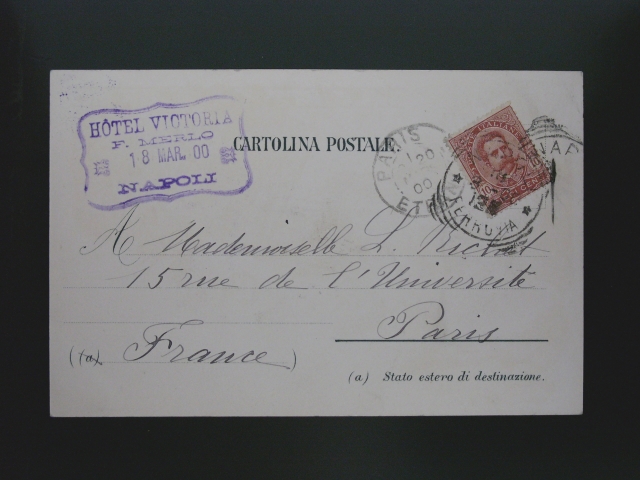 HÔTEL VICTORIA
F. MERLO
18 MAR. 00
NAPOLI
CARTOLINA POSTALE.
PARIS
20
00
ETR
NAP
FERROVIA
A Mademoiselle L. Richet
15 rue de l'Université
Paris
France
(a) Stato estero di destinazione.